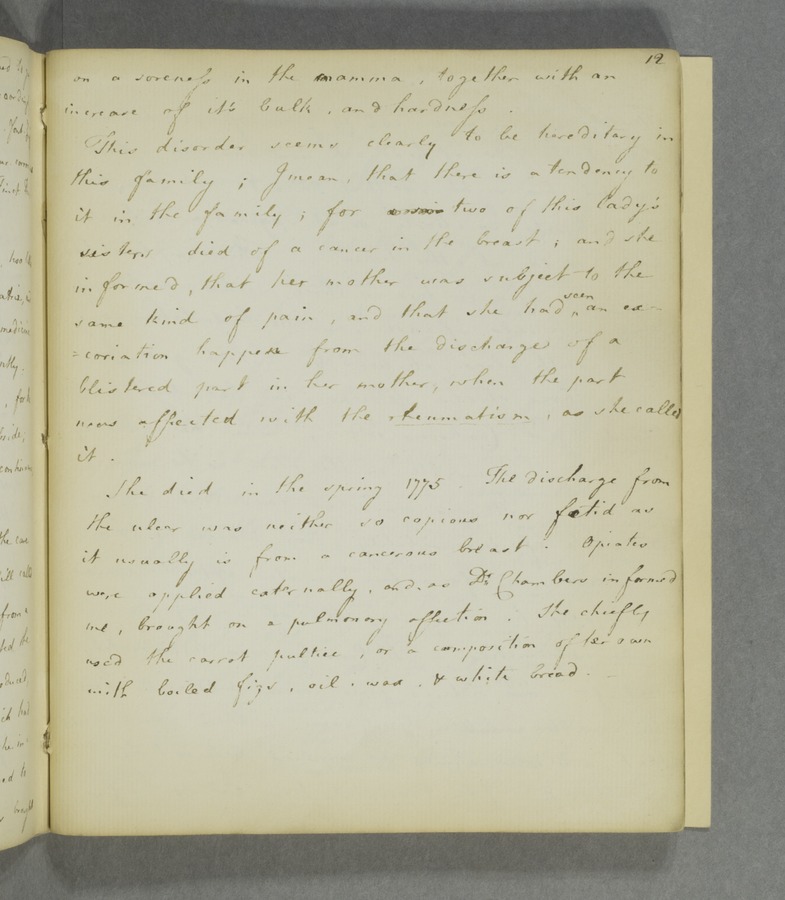 12
on a soreness in the mamma, together with an
increase of it's bulk, and hardness.
This disorder seems clearly to be hereditary in
this family; I mean, that there is a tendency to
it in the family; for two of this Lady's
sisters died of a cancer in the breast; and she
informed, that her mother was subject to the
same kind of pain, and that she had seen an ex-
=coriation happen from the discharge of a
blistered part in her mother, when the part
was affected with the rheumatism, as she called
it.
She died in the spring 1775. The discharge from
the ulcer was neither so copious nor fœtid as
it usually is from a cancerous breast. Opiates
were applied externally, and, as Dr. Chambers informed
me, brought on a pulmonary affection. She chiefly
used the carrot pultice, or a composition of her own
with boiled figs, oil, wax, & white bread.